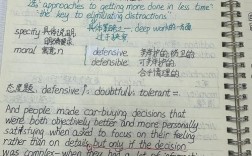 "approaches to getting more done in less time"
"the key to eliminating distractions"
specify 具体说明
明确说明
moral 寓意 n
defensive 防御的
defensible
合乎情理的
态度题. defensive / doubtful tolerant =
And people made car-buying decisions that
were both objectively better and more personally
satisfying when asked to focus on their feeling
rather than on details, but only if the decision
was complex — when they had a lot of